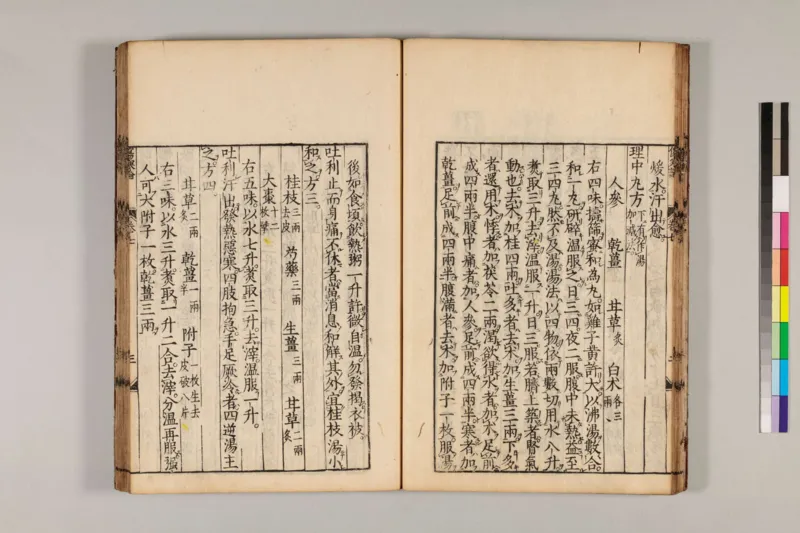 煖水汗出愈
理中丸方下有作湯加減法
人參 乾薑 甘草炙 白术各三兩
右四味擣篩蜜和爲丸如雞子黃許大以沸湯數合
和一丸研碎溫服之日三四夜二服腹中未熱益至
三四丸然不及湯湯法以四物依兩數切用水八升
煑取三升去滓溫服一升日三服若臍上築者腎氣
動也去术加桂四兩吐多者去术加生薑三兩下多
者還用术悸者加茯苓二兩渴欲得水者加术足前
成四兩半腹中痛者加人參足前成四兩半寒者加
乾薑足前成四兩半腹滿者去术加附子一枚服湯
後如食頃飲熱粥一升許微自溫勿發揭衣被
吐利止而身痛不休者當消息和解其外宜桂枝湯小
和之方三
桂枝三兩去皮 芍藥三兩 生薑三兩 甘草二兩炙
大棗十二枚擘
右五味以水七升煑取三升去滓溫服一升
吐利汗出發熱惡寒四肢拘急手足厥冷者四逆湯主
之方四
甘草二兩炙 乾薑一兩半 附子一枚生去皮破八片
右三味以水三升煑取一升二合去滓分溫再服強
人可大附子一枚乾薑三兩